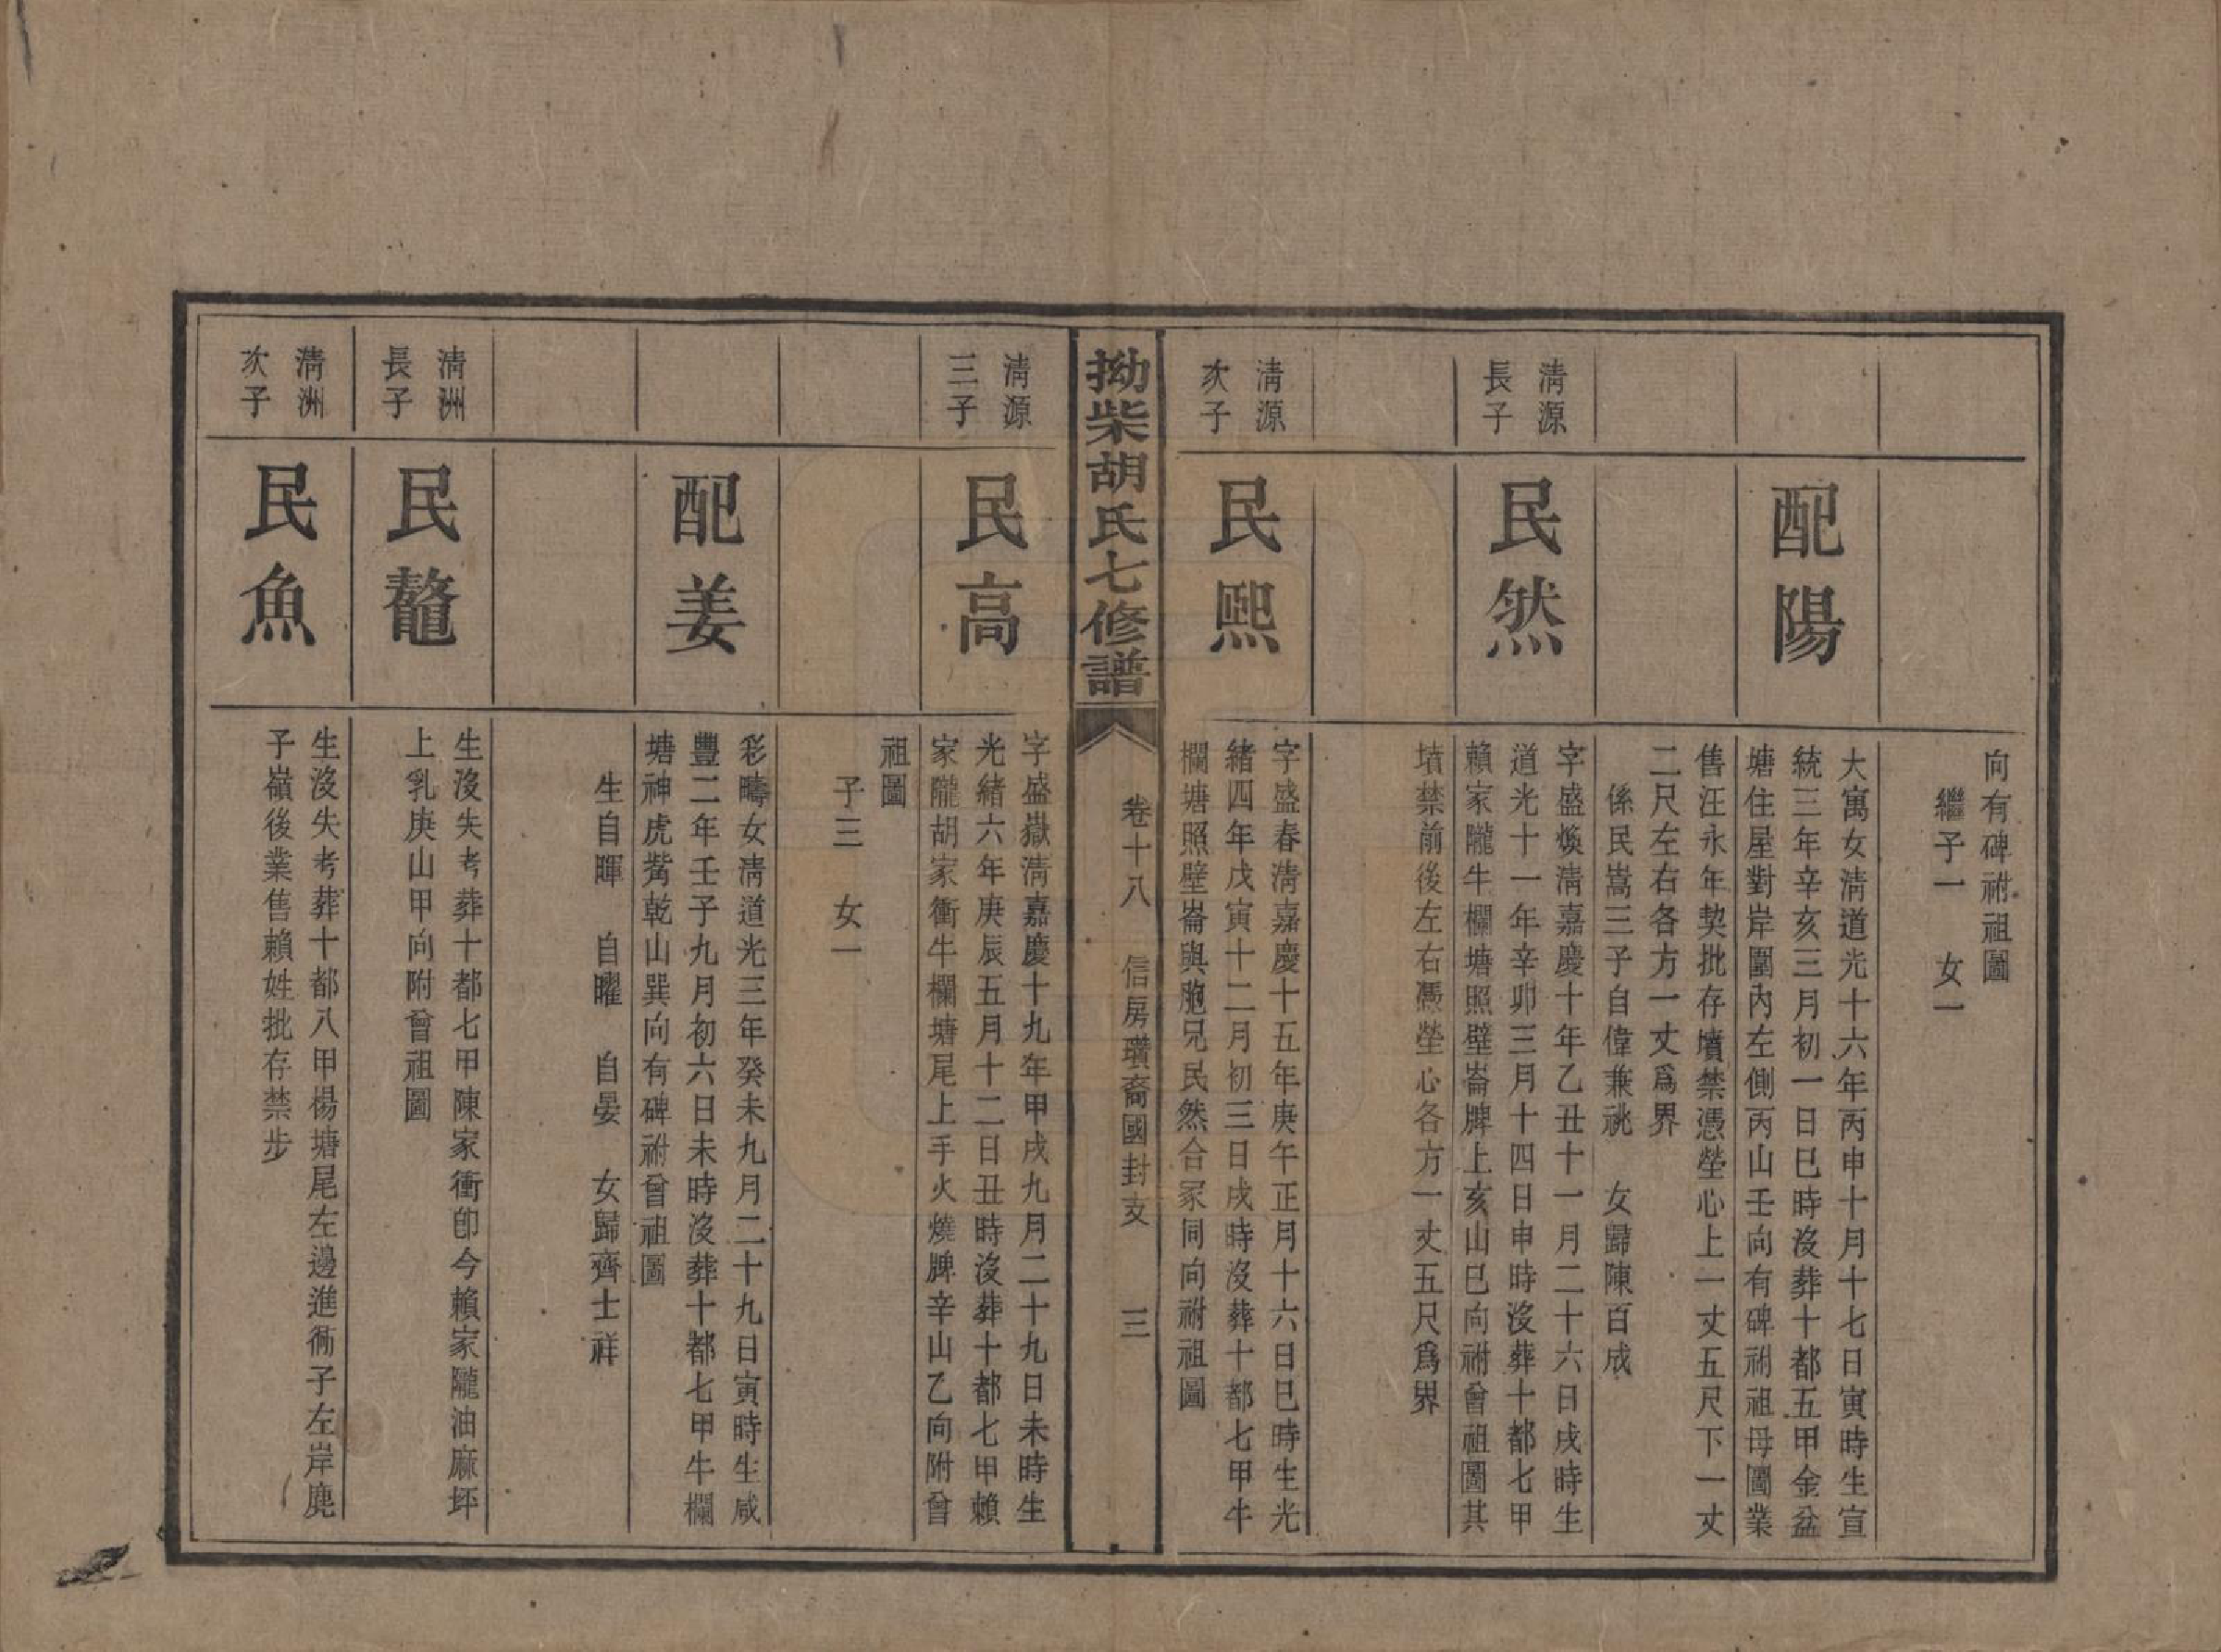 向有碑祔祖圖
繼子一　女一
配陽
大寓女清道光十六年丙申十月十七日寅時生宣
統三年辛亥三月初一日巳時沒葬十都五甲金盆
塘住屋對岸圍內左側丙山壬向有碑祔祖母圖業
售汪永年契批存墳禁憑塋心上一丈五尺下一丈
二尺左右各方一丈爲界
係民嵩三子自偉兼祧　女歸陳百成
清源
長子
民然
字盛煥清嘉慶十年乙丑十一月二十六日戌時生
道光十一年辛卯三月十四日申時沒葬十都七甲
賴家隴牛欄塘照壁崙脾上亥山巳向祔曾祖圖其
墳禁前後左右憑塋心各方一丈五尺爲界
清源
次子
民熙
字盛春清嘉慶十五年庚午正月十六日巳時生光
緒四年戊寅十二月初三日戌時沒葬十都七甲牛
欄塘照壁崙與胞兄民然合冢同向祔祖圖
拗柴胡氏七修譜
卷十八　信房瓚裔國封支　三
清源
三子
民高
字盛嶽清嘉慶十九年甲戌九月二十九日未時生
光緒六年庚辰五月十二日丑時沒葬十都七甲賴
家隴胡家衝牛欄塘尾上手火燒脾辛山乙向附曾
祖圖
子三　女一
配姜
彩疇女清道光三年癸未九月二十九日寅時生咸
豐二年壬子九月初六日未時沒葬十都七甲牛欄
塘神虎嘴乾山巽向有碑祔曾祖圖
生自暉　自曜　自晏　女歸齊士祥
清洲
長子
民鼇
生沒失考葬十都七甲陳家衝卽今賴家隴油麻坪
上乳庚山甲向附曾祖圖
清洲
次子
民魚
生沒失考葬十都八甲楊塘尾左邊進衕子左岸麂
子嶺後業售賴姓批存禁步